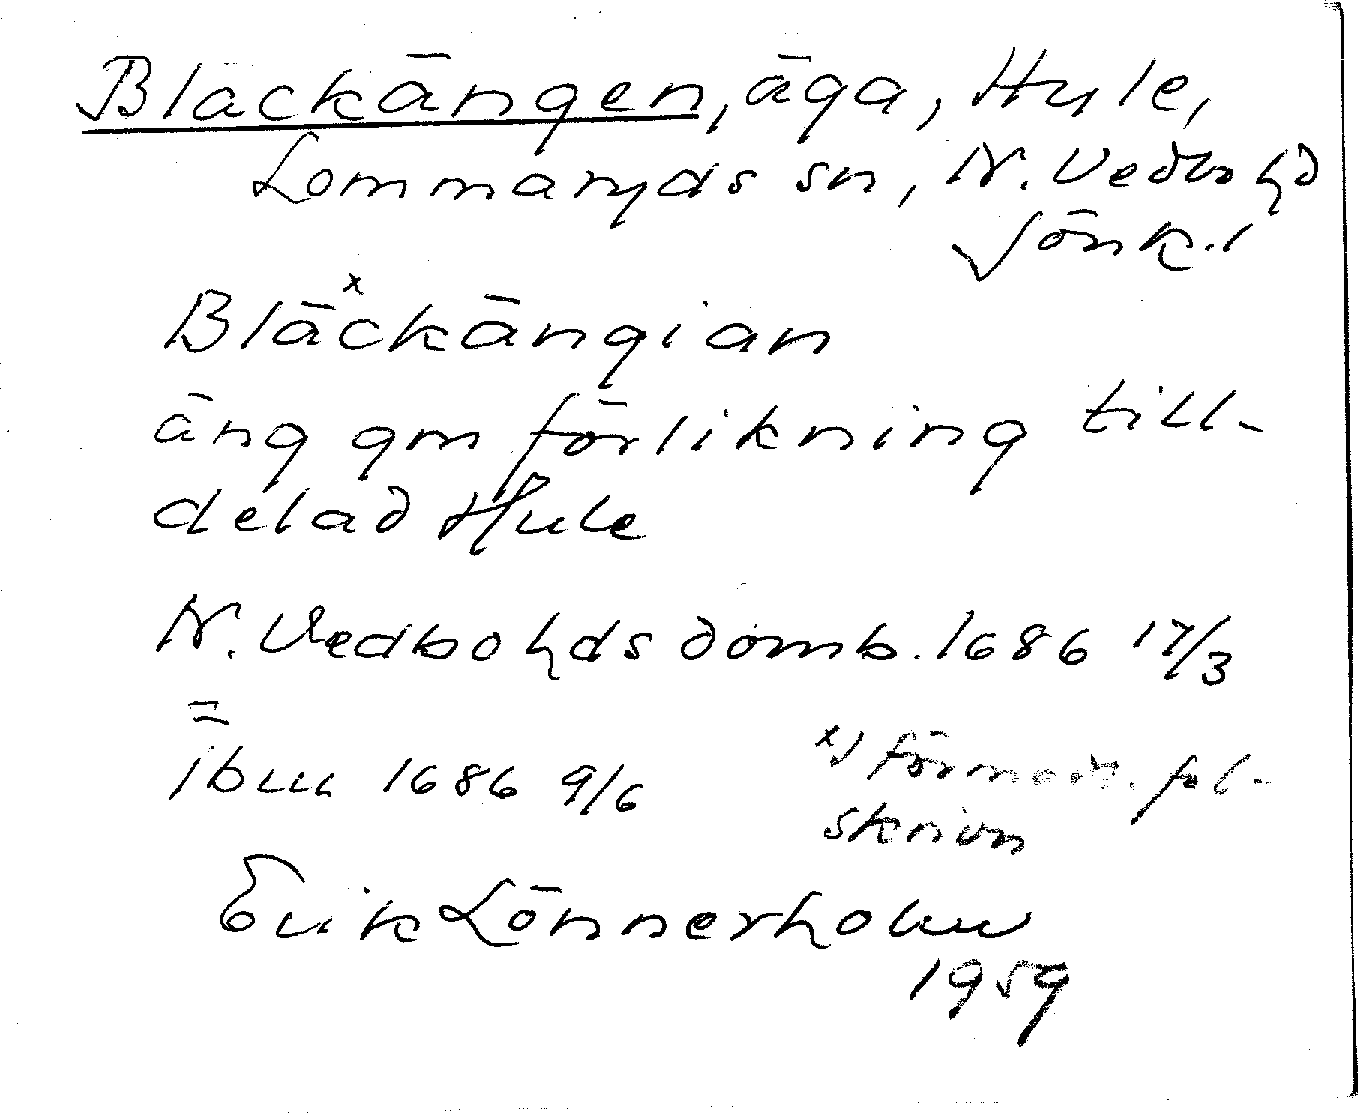 Blackängen, äga, Hule,
Lommaryds sn, N. Vedbo hd
Jönk. l
Bläckängian
x
äng gm förlikning till-
delad Hule
N. Vedbo hds domb. 1686 17/3
=
ibm 1686 9/6
x) förmodl. fel-
skrivn
Erik Lönnerholm
1959